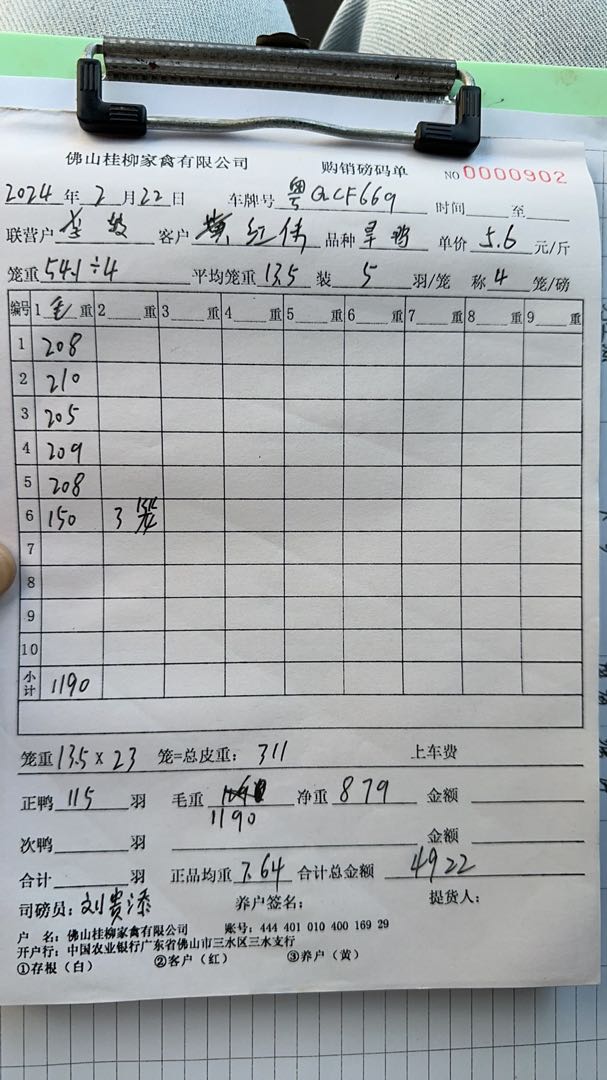 佛山桂柳家禽有限公司 购销磅码单 NO 0000902
2024 年 2 月 22 日 车牌号 粤QCF669 时间 至
联营户 客户 黄红伟 品种 旱鸭 单价 5.6 元/斤
笼重 54.1÷4 平均笼重 13.5 装 5 羽/笼 称 4 笼/磅
编号 1 毛 重 2 重 3 重 4 重 5 重 6 重 7 重 8 重 9 重
1 208
2 210
3 205
4 209
5 208
6 150 3
7
8
9
10
小计 1190
笼重 13.5 x 23 笼=总皮重: 311 上车费
正鸭 115 羽 毛重 1190 净重 879 金额
次鸭 羽 金额
合计 羽 正品均重 7.64 合计总金额 4922
司磅员: 刘贵添 养户签名: 提货人:
户 名: 佛山桂柳家禽有限公司 账号: 444 401 010 400 169 29
开户行: 中国农业银行广东省佛山市三水区三水支行
①存根(白) ②客户(红) ③养户(黄)